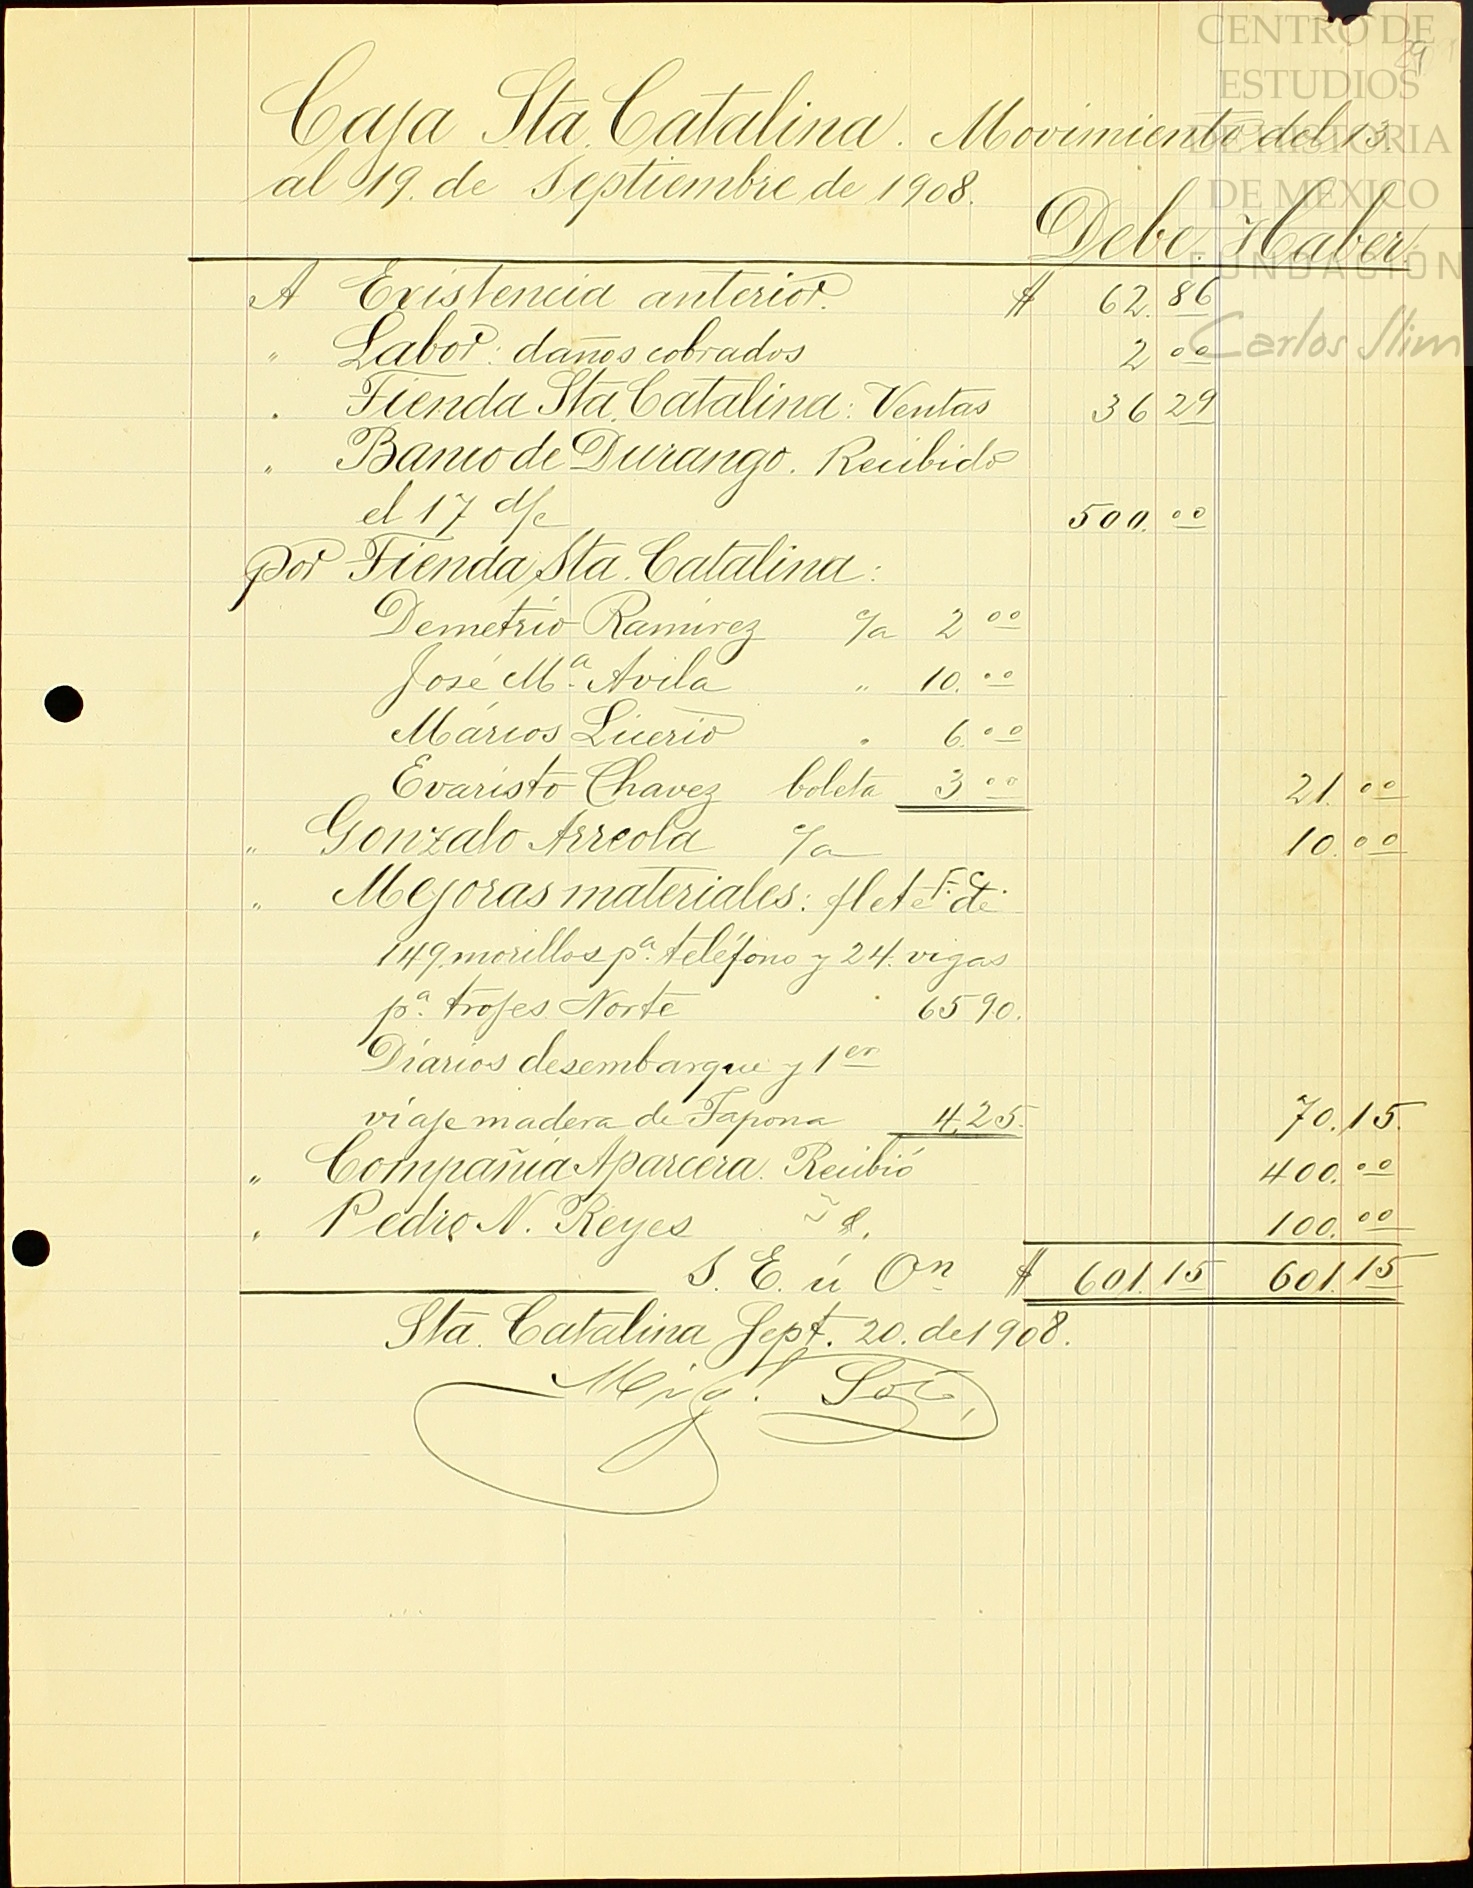 CENTRO DE
ESTUDIOS
DE HISTORIA
DE MEXICO
FUNDACIÓN
Carlos Slim
29
Caja Sta. Catalina. Movimiento del 13.
al 19. de Septiembre de 1908.
Debe. Haber.
A Existencia anterior. $ 62.86
" Labor: daños cobrados 2 00
" Tienda Sta. Catalina: Ventas 36 29
" Banco de Durango. Recibido
el 17 d/c 500.00
por Tienda Sta. Catalina:
Demetrio Ramirez c/a 2 00
José Ma. Avila " 10.00
Marcos Licerio " 6.00
Evaristo Chavez boleta 3.00 21.00
" Gonzalo Arreola c/a 10.00
" Mejoras materiales: flete F.C. de
149 morillos pa. teléfono y 24. vigas
pa. trojes Norte 65 90.
Diarios desembarque y 1er
viaje madera de Tapona 4.25. 70.15.
" Compañia Aparcera. Recibió 400.00
" Pedro N. Reyes 100.00
S. E. ú On $ 601.15 601.15
Sta. Catalina Sept. 20. de 1908.
Migl.